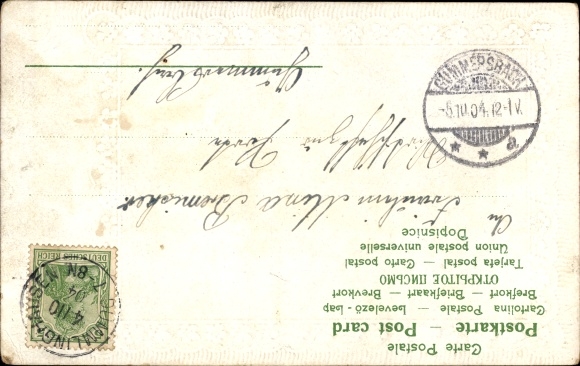 Carte Postale
Postkarte — Post card
Cartolina Postale — Levelező-Lap
Brefkort — Briefkaart — Brevkort
ОТКРЫТОЕ ПИСЬМО
Tarjeta postal — Carto postal
Union postale universelle
Dopisnice
An
Fräulein Mina
Gummersbach
DEUTSCHES REICH
4/10
04
8N
GUMMERSBACH
-5.10.04.12-1V.
* * a.